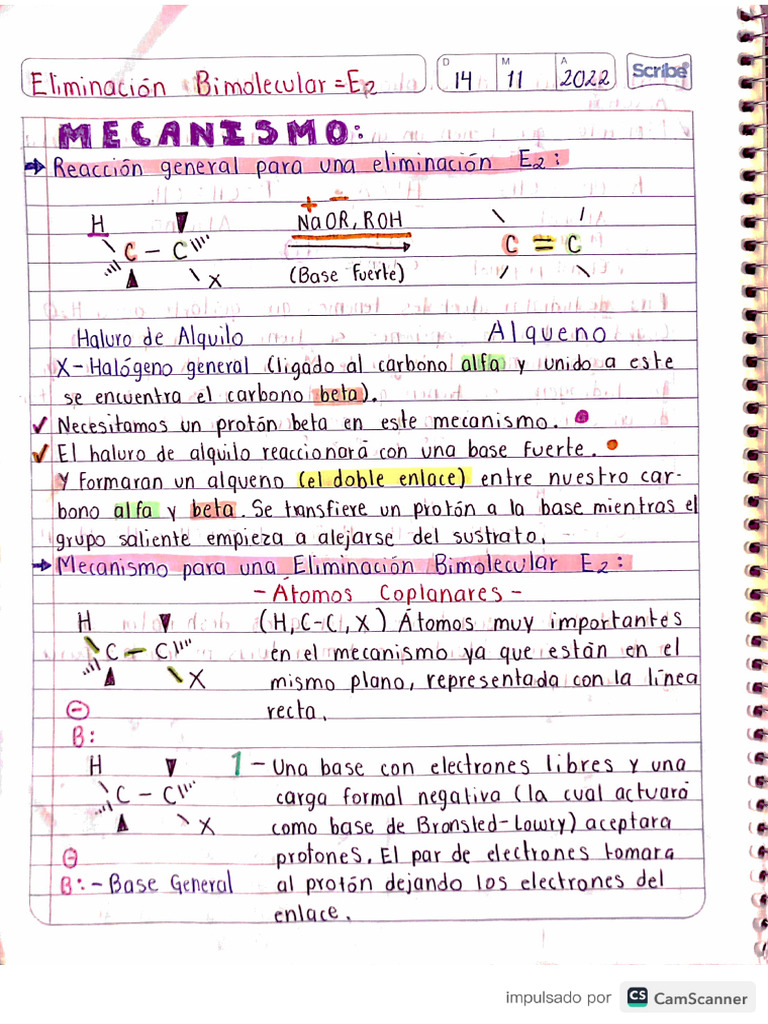 Eliminación Bimolecular = E₂
D 14 M 11 A 2022
Scribe
MECANISMO:
→ Reacción general para una eliminación E₂:
+ -
H NaOR, ROH
C - C C = C
X (Base Fuerte)
Haluro de Alquilo Alqueno
X- Halógeno general (ligado al carbono alfa y unido a este
se encuentra el carbono beta).
✓ Necesitamos un protón beta en este mecanismo.
✓ El haluro de alquilo reaccionará con una base fuerte.
y formaran un alqueno (el doble enlace) entre nuestro car-
bono alfa y beta. Se transfiere un protón a la base mientras el
grupo saliente empieza a alejarse del sustrato.
→ Mecanismo para una Eliminación Bimolecular E₂:
- Átomos Coplanares -
H (H, C-C, X) Átomos muy importantes
C - C en el mecanismo ya que están en el
X mismo plano, representada con la línea
⊖ recta.
B:
H 1 - Una base con electrones libres y una
C - C carga formal negativa (la cual actuará
X como base de Bronsted-Lowry) aceptara
⊖ protones. El par de electrones tomara
B: - Base General al protón dejando los electrones del
enlace.
impulsado por CS CamScanner